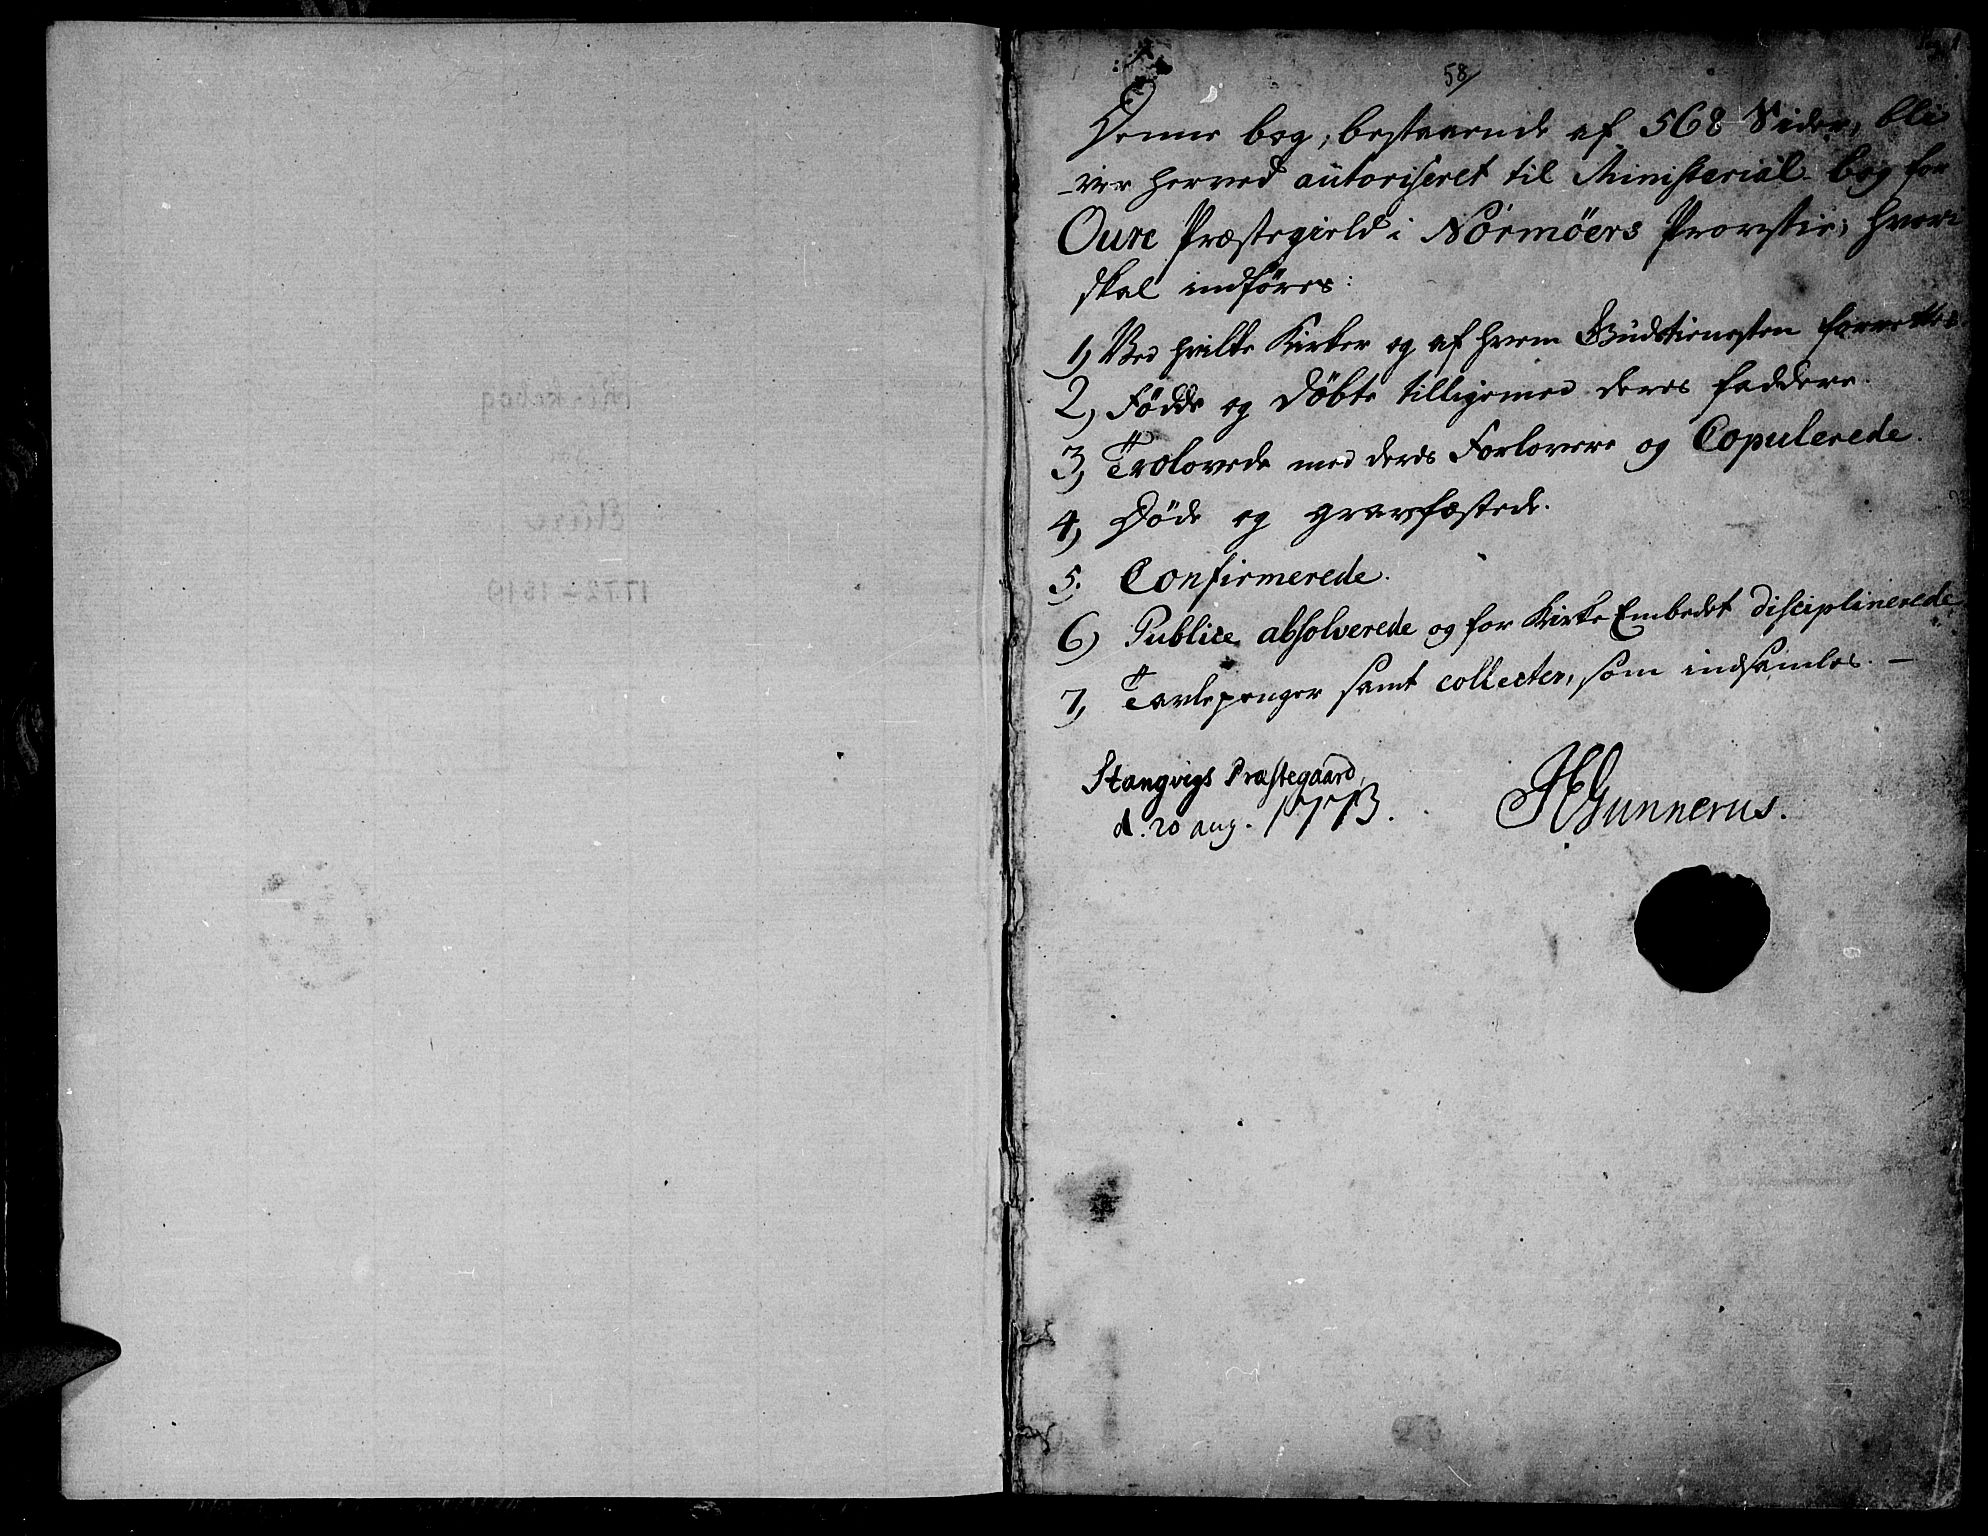 58/
Denne bog, bestaaende af 568 Sider, bli
-ver herved autoriseret til Ministerial-bog for
Oure Præstegield i Nörmöers Provstie, hvori
skal indföres:
1, Ved hvilke Kirker og af hvem Gudstienesten forrettes.
2, Fødde og Döbte tilligemed deres faddere.
3, Trolovede med deres Forlovere og Copulerede.
4, Døde og gravfæstede.
5. Confirmerede.
6) Publice absolverede og for Kirke Embedet disciplinerede
7, Tavlepenger samt collecter, som indsamles. —
Stangvigs Præstegaard,
d. 20 aug. 1773.
Gunnerus.
1772 - 1819